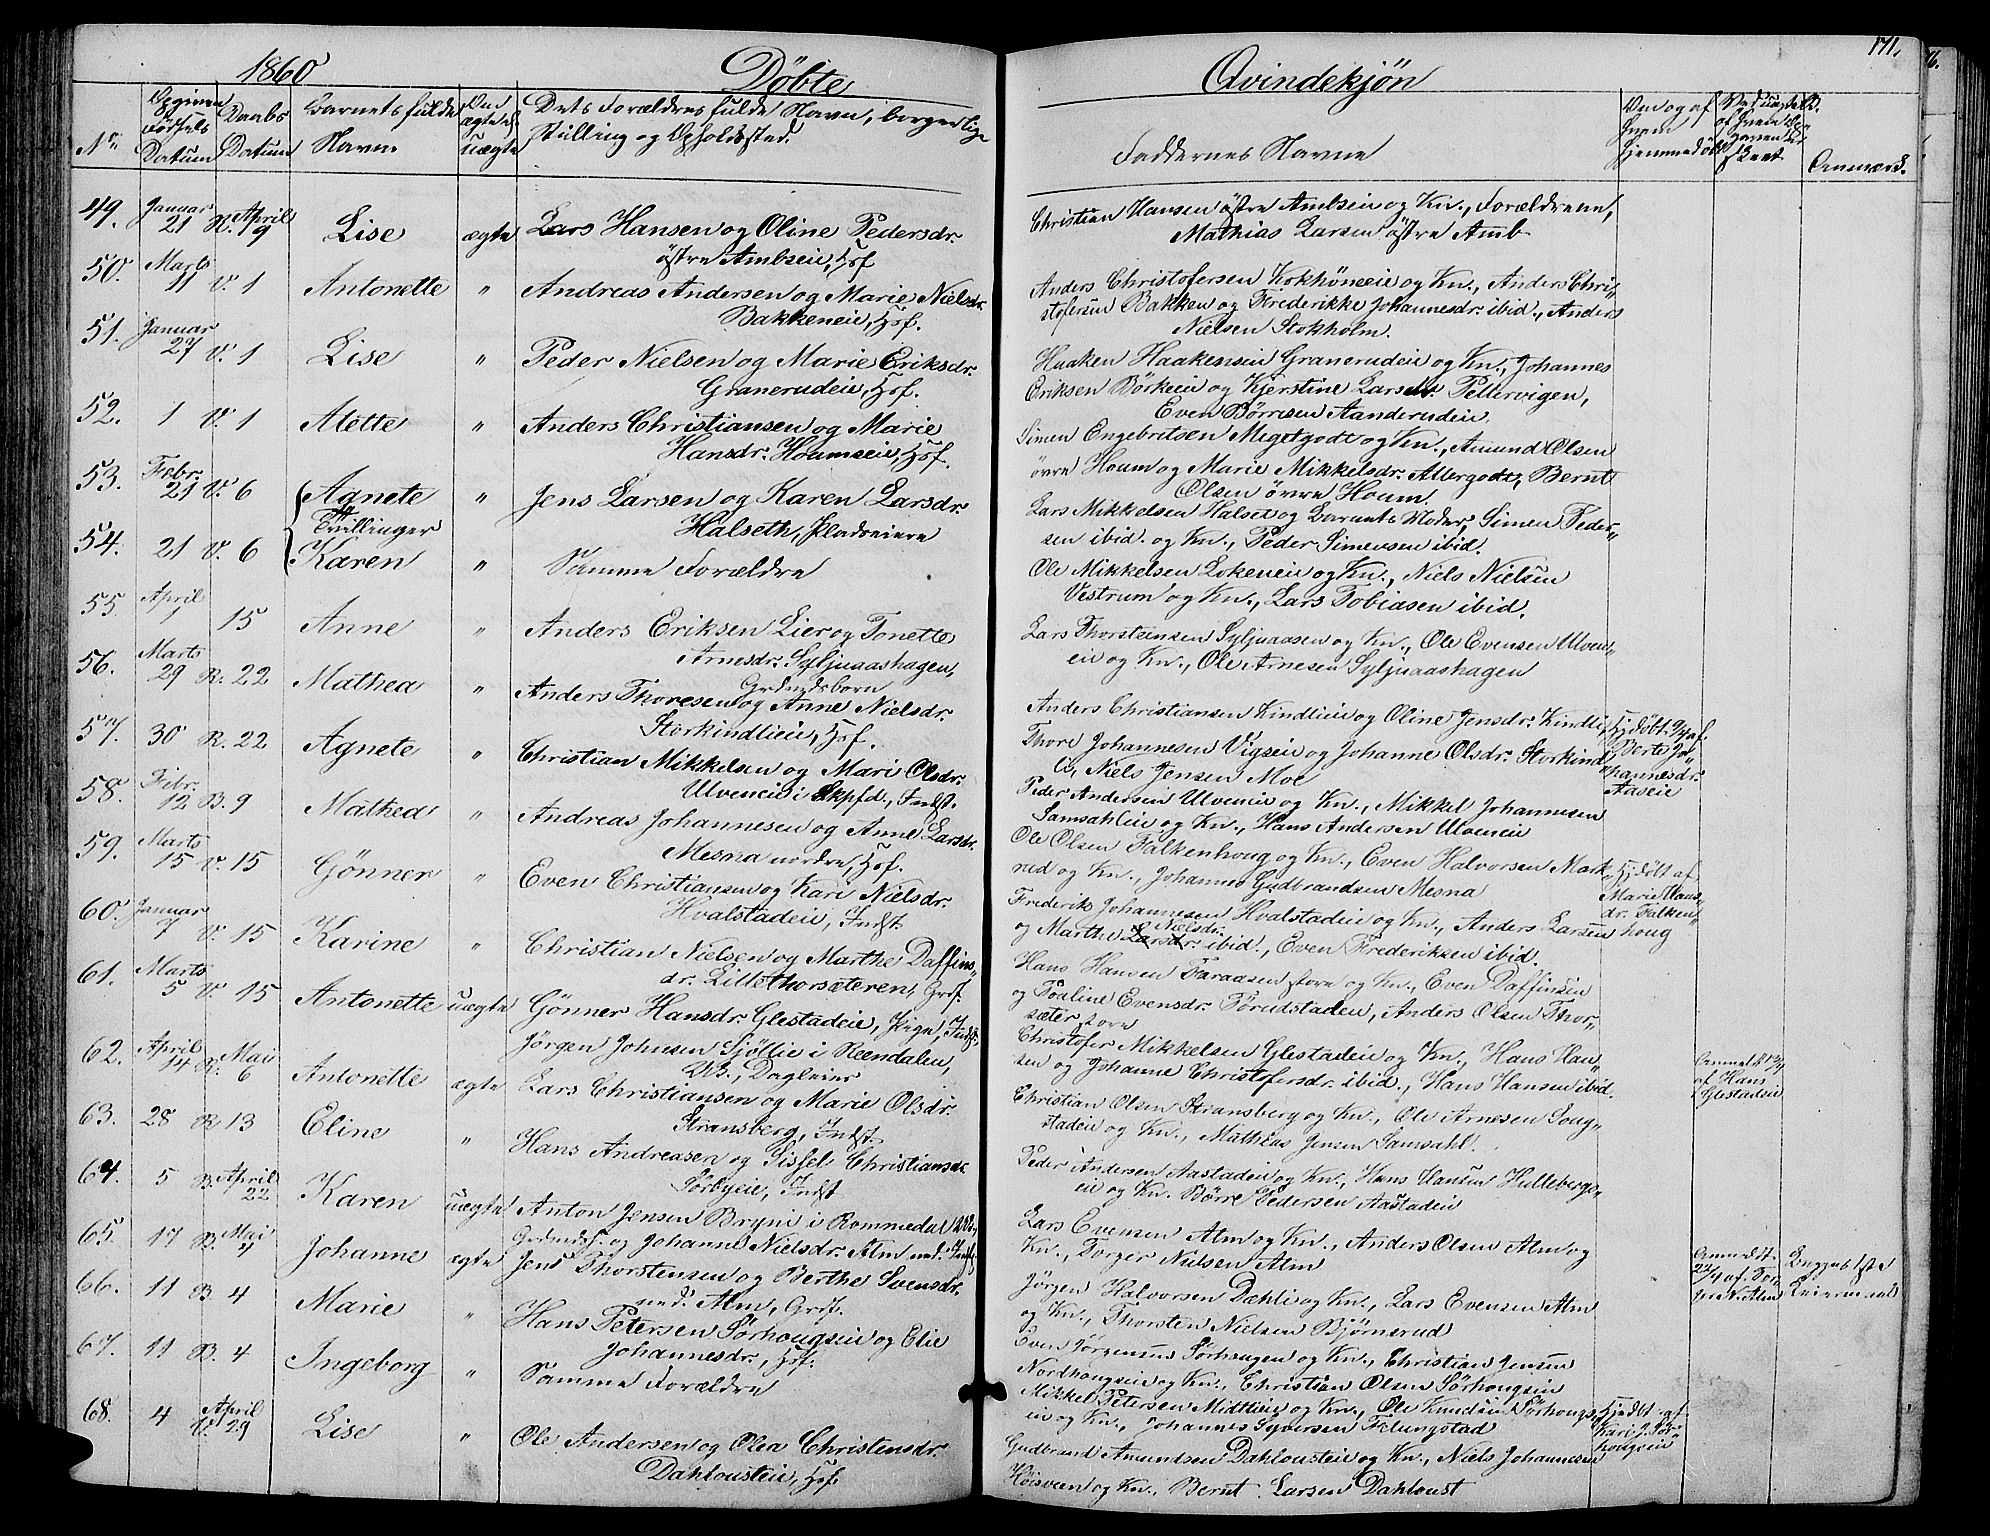 1860 Döbte Qvindekjøn 171.
No Opgiven Födsels Datum Daabs Datum Barnets fulde Navn. Om ægte el. uægte Dets Forældres fulde Navn, borgerlige Stilling og Opholdssted. Faddernes Navne Om og af hvem hjemmedöbt Anmærk.
49. Januar 21 R. April 9 Lise ægte Lars Hansen og Oline Pedersdr.
östre Ambseie, Hsf.
Christian Hansen östre Ambseie og Kn., Forældrene,
Mathias Larsen östre Amb
50. Marts 11 V. 1 Antonette " Andreas Andersen og Marie Nielsdr.
Bakkeneie, Hsf.
Anders Christofersen Kokhöneeie og Kn., Anders Chri-
stofersen Bakken og Frederikke Johannesdr. ibid., Anders
Nielsen Stokholm.
51. Januar 27 V. 1 Lise " Peder Nielsen og Marie Eriksdr.
Granerudeie, Hsf.
Haaken Haakensen Granerudeie og Kn., Johannes
Eriksen Börkeeie og Kjerstine Larsdr. Pellervigen,
Even Börresen Aanderudeie
52. 1 V. 1 Alette " Anders Christiansen og Marie
Hansdr. Houmseie, Hsf.
Simen Engebritsen Megetgodt og Kn., Amund Olsen
övre Houm og Marie Mikkelsdr. Allergodt, Bernt
Olsen övre Houm
53. Febr. 21 V. 6 Agnete " Jens Larsen og Karen Larsdr.
Tvillinger
Halseth, Pladseiere
Lars Mikkelsen Halset og Barnets Moder, Simen Peder-
sen ibid. og Kn., Peder Simensen ibid.
54. 21 V. 6 Karen " Samme Forældre
Ole Mikkelsen Lökeneie og Kn., Niels Nielsen
Vestrum og Kn., Lars Tobiasen ibid.
55 April 1 15 Anne " Anders Eriksen Lier og Tonette
Arnesdr. Syljuaashagen,
Grdmdsbørn
Lars Thorsteinsen Syljuaasen og Kn., Ole Evensen Ulven-
eie og Kn., Ole Arnesen Syljuaashagen
56. Marts 29 R. 22 Mathea " Anders Thoresen og Anne Nielsdr.
Storkindlieie, Hsf.
Anders Christiansen Kindlieie og Oline Jensdr. Kindli,
Thore Johannesen Vigseie og Johanne Olsdr. Storkind-
li, Niels Jensen Moe
Hjdöbt af Berte Jo-
hannesdr.
Aaseie
57. 30 R. 22 Agnete " Christian Mikkelsen og Mari Olsdr.
Ulveneie i Skpfd., Indst.
Peder Andersen Ulveneie og Kn., Mikkel Johannesen
Samsahleie og Kn., Hans Andersen Ulveneie
58. Febr. 12 B. 9 Mathea " Andreas Johannesen og Anne Larsdr.
Mesna nordre, Hsf.
Ole Olsen Falkenhoug og Kn., Even Halvorsen Mark-
rud og Kn., Johannes Gudbrandsen Mesna
Hjdöbt af
Marie Hans-
dr. Falken-
houg
59. Marts 15 V. 15 Gönner " Even Christiansen og Kari Nielsdr.
Hvalstadeie, Indst.
Frederik Johannesen Hvalstadeie og Kn., Anders Larsen
og Marthe Nielsdr. ibid., Even Frederiksen ibid.
60. Januar 7 V. 15 Karine " Christian Nielsen og Marthe Daffins-
dr. Lillethorsæteren, Grdf.
Hans Hansen Faraasen store og Kn., Even Daffinsen
og Pauline Evensdr. Törudstaden, Anders Olsen Thor-
sæter store
61. Marts 5 V. 15 Antonette uægte Gönner Hansdr. Glestadeie, Pige, Indst.
Jörgen Johnsen Sjöllie i Reendalen,
Ub., Dagleier
Christofer Mikkelsen Glestadeie og Kn., Hans Han-
sen og Johanne Christofersdr. ibid., Hans Hansen ibid.
Anmeldt
af Hans
Glestadeie
62. April 14 R. Mai 6 Antonette ægte Lars Christiansen og Marie Olsdr.
Stransberg, Indst.
Christian Olsen Stransberg og Kn., Ole Arnesen Soug-
stadeie og Kn., Mathias Jensen Samsahl.
63. 28 R. 13 Eline " Hans Andreasen og Sissel Christiansdr.
Sörbyeie, Indst.
Peder Andersen Aastadeie og Kn., Hans Hansen Hullebergs-
eie og Kn. Börre Pedersen Aastadeie
64. 5 B. April 22 Karen uægte Anton Jensen Bryni i Rommedal
og Johanne Nielsdr. Alm ned. Indst.
Lars Evensen Alm og Kn., Anders Olsen Alm og
Kn., Torger Nielsen Alm
Anmeldt
22/4 af Tor-
ger N. Alm
Begges 1ste
Leiermaal
65. 17 B. Mai 4 Johanne ægte Jens Thorstensen og Berthe Svensdr.
ned. Alm, Grdf.
Jörgen Halvorsen Dæhli og Kn., Lars Evensen Alm
og Kn., Thorsten Nielsen Bjørnerud
66. 11 B. 4 Marie " Hans Petersen Sörhougseie og Elie
Johannesdr., Hsf.
Even Jörgensen Sörhaugen og Kn., Christian Jensen
Nordhougseie og Kn., Christian Olsen Sörhougseie
67. 11 B. 4 Ingeborg " Samme Forældre
Mikkel Petersen Midtlieie og Kn., Ole Knudsen Sörhougs-
eie og Kn., Johannes Syversen Felungstad
Hjdöbt af
Kari J. Sör-
hougseie
68. 4 V. April 29 Lise " Ole Andersen og Olea Christensdr.
Dahlousteie, Hsf.
Gudbrand Amundsen Dahlousteie og Kn., Niels Johannesen
Höisveen og Kn., Bernt Larsen Dahloust